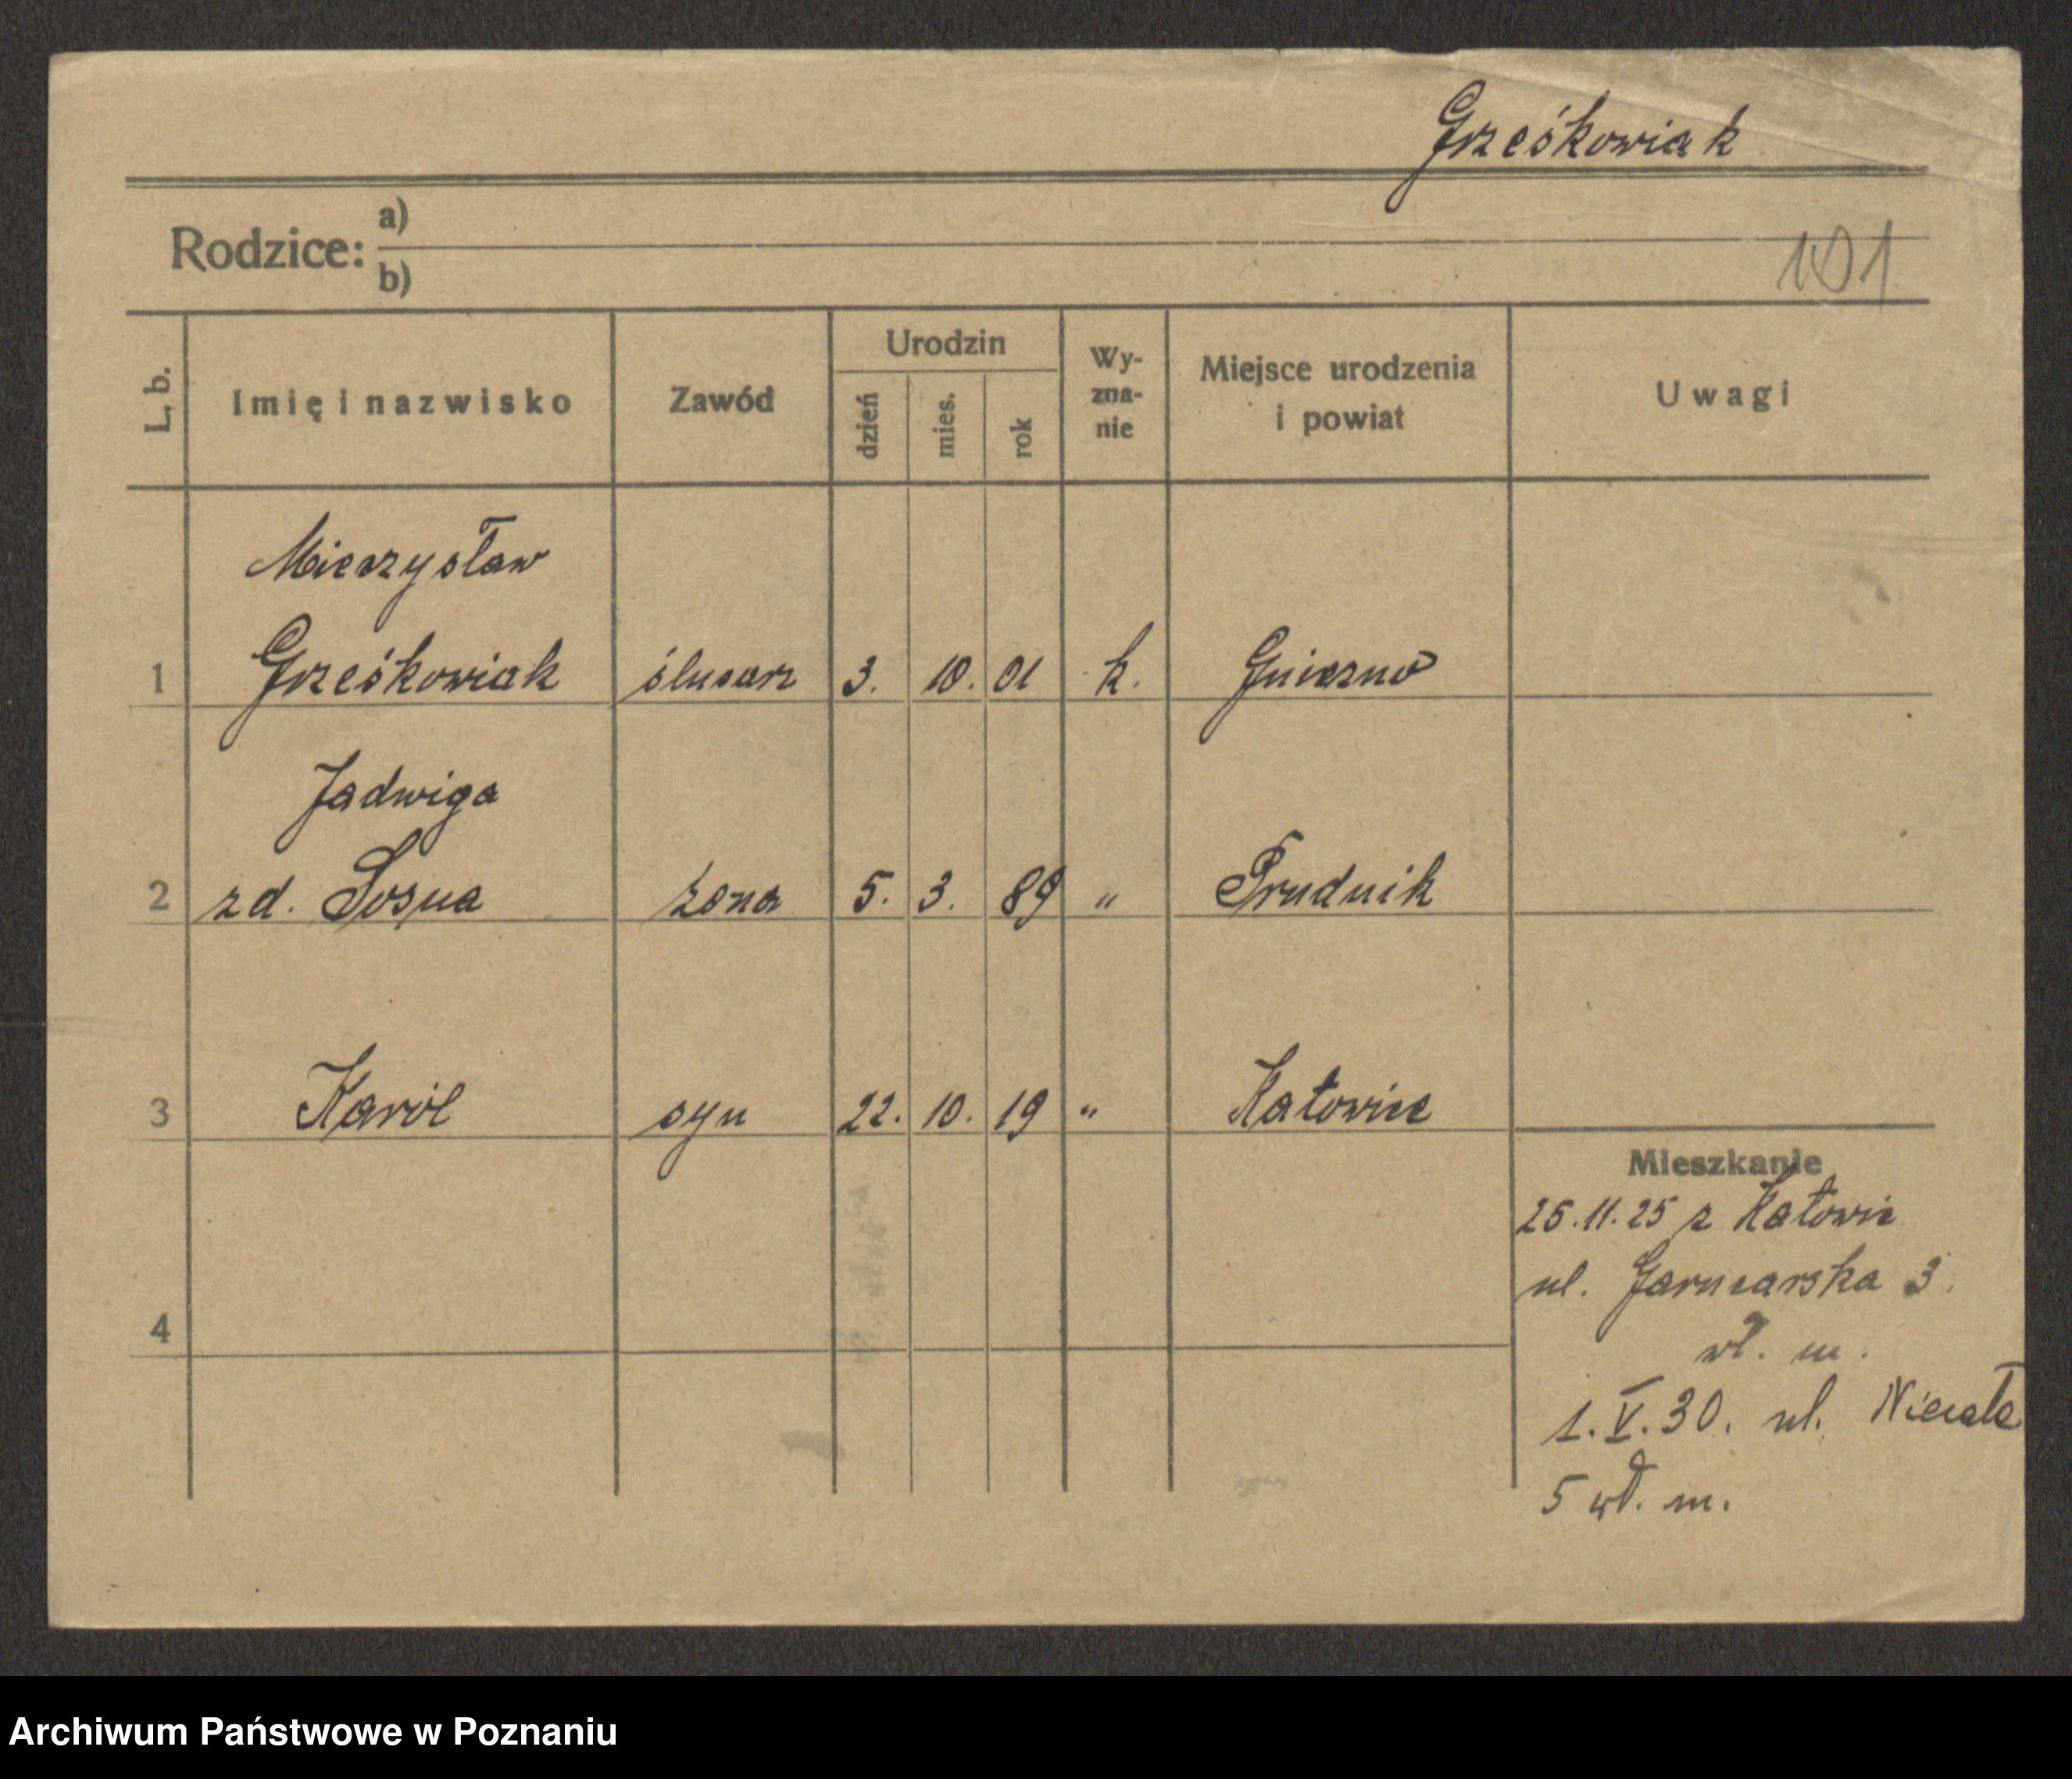 Grześkowiak
Rodzice:
a)
b)
101
L, b.
Imię i nazwisko
Zawód
Urodzin
dzień
mies.
rok
Wy-
zna-
nie
Miejsce urodzenia
i powiat
Uwagi
Mieczysław
1 Grześkowiak ślusarz 3. 10. 01 k. Gniezno
Jadwiga
2 zd. Sosna żona 5. 3. 89 „ Prudnik
3 Karól syn 22. 10. 19 „ Katowice
Mieszkanie
25.11.25 z Katowic
ul. Garncarska 3.
wł. m.
4
1.V.30. ul. Niecała
5 wł. m.
Archiwum Państwowe w Poznaniu